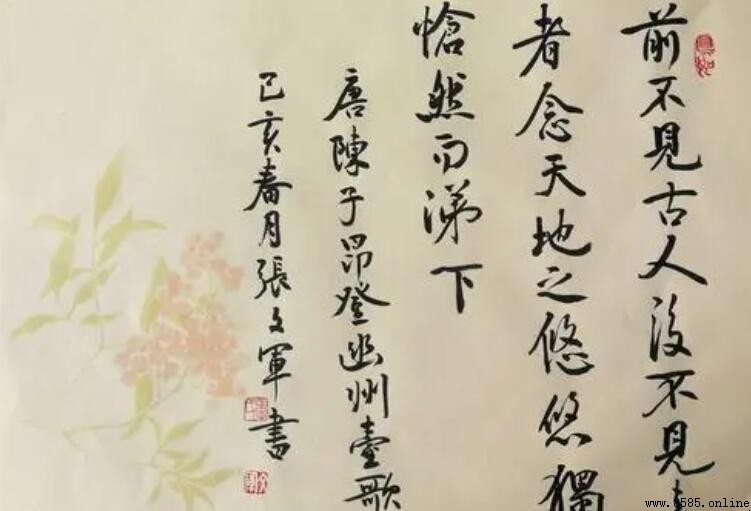 前不見古人後不見
者念天地之悠悠獨
愴然而涕下
唐陳子昂登幽州臺歌
己亥春月張文軍書
www.8585.online